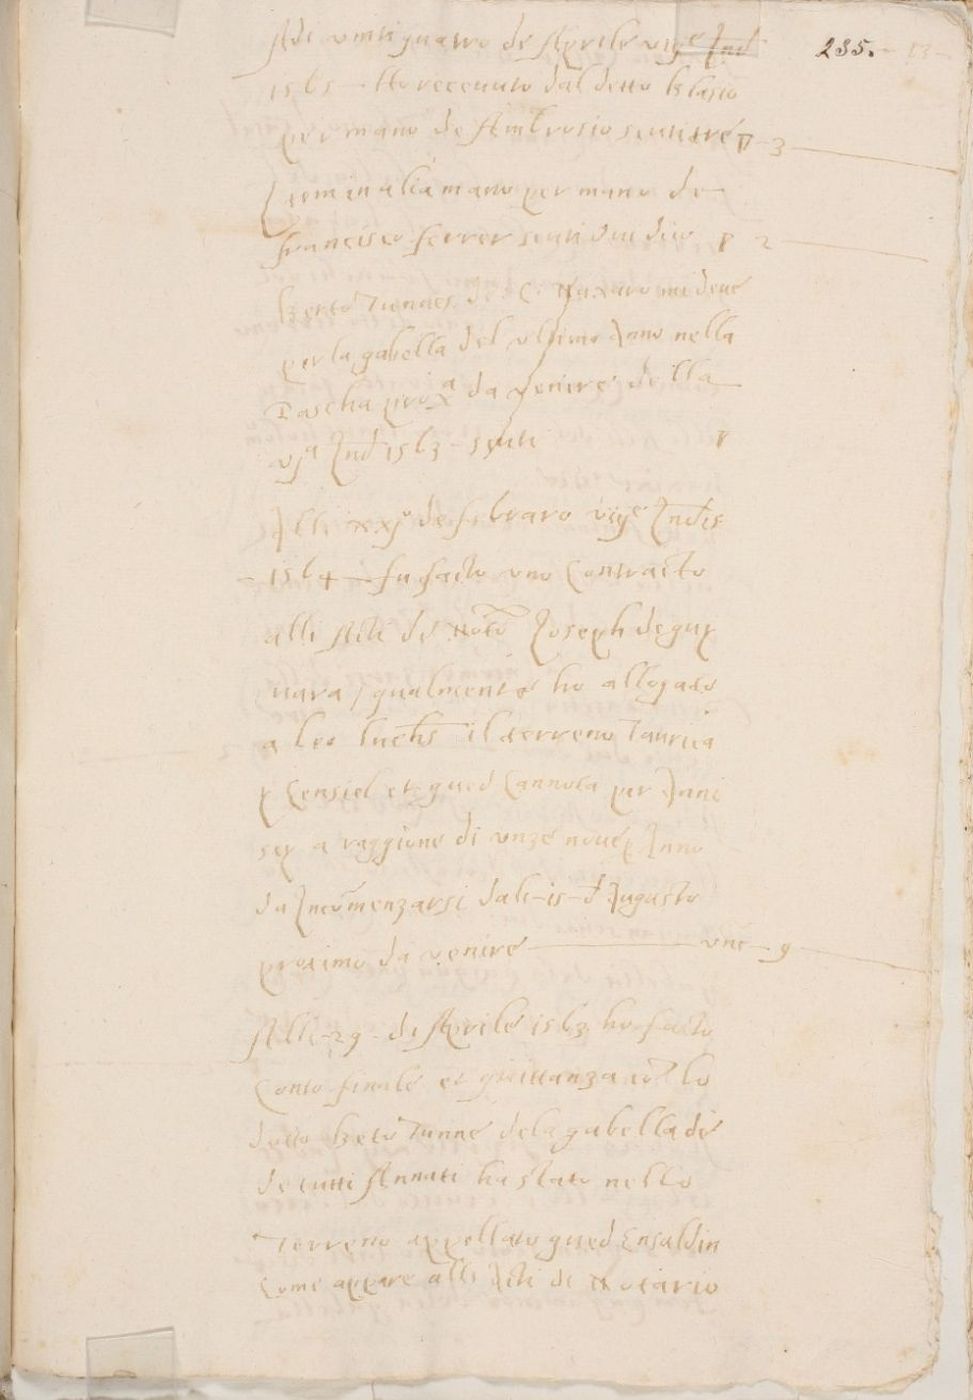 235.
Adi vintiquatro de Aprile viij^e Ind
1565 - Ho recevuto dal detto blasio
per mano de Ambrosio scuti tré ▽ 3
Item in alia mano per mano de
francisco ferrer scuti dui dico ▽ 2
berto Tunnes di C. Naxaro mi deve
per la gabella del ultimo Anno nella
Pascha prox^a da venire della
vj^a Ind 1563 - scuti ▽
Alli xxj^o de febraro viij^e Indis
- 1564 - fu facto uno Contracto
alli Atti de Noto Joseph de gui
vara / qualmente ho allogato
a leo il terreno Taurica
et gued Cannota per Anni
sey a raggione di unze nove p Anno
da Incomenzarsi dali - 15 - d Augusto
proximo da venire unc - 9
Alli - 29 - di Aprile 1563 ho facto
Conto finale et quittanza cō lo
detto berto Tunne dela gabella de
de tutti Annati ha stato nello
Terreno appellato gued Ensaldin
Come appare alli Acti di Notario